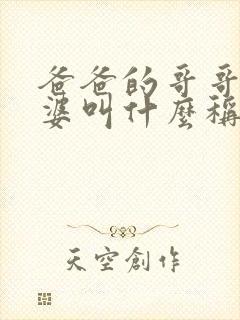 爸爸的哥哥
婆叫什麼稱
天空創作